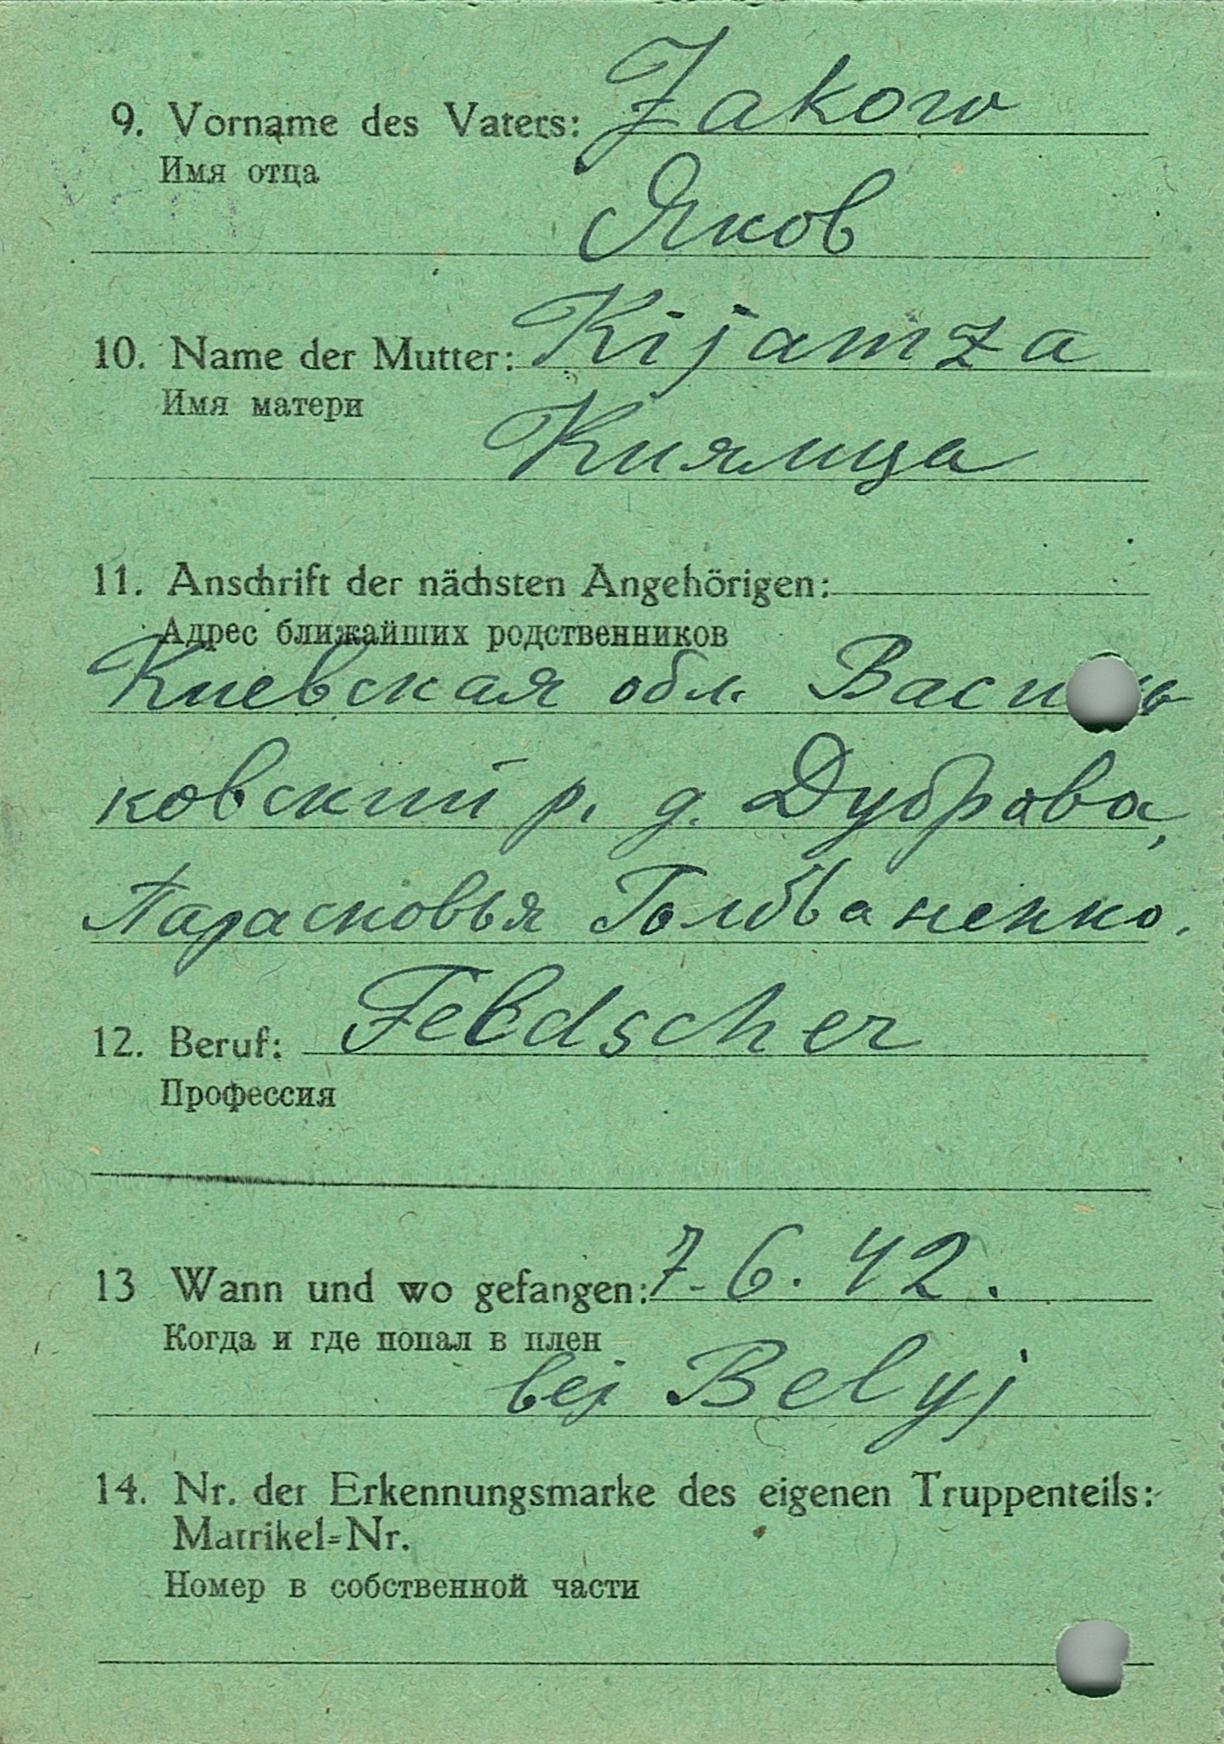 9. Vorname des Vaters: Jakow
Имя отца
Яков
10. Name der Mutter: Kijamza
Имя матери
Киямца
11. Anschrift der nächsten Angehörigen:
Адрес ближайших родственников
Киевская обл.
ковский р. д. Дуброва,
Парасковья
12. Beruf: Feldscher
Профессия
13 Wann und wo gefangen: 7.6.42.
Когда и где попал в плен
bej Belyj
14. Nr. der Erkennungsmarke des eigenen Truppenteils:
Matrikel=Nr.
Номер в собственной части